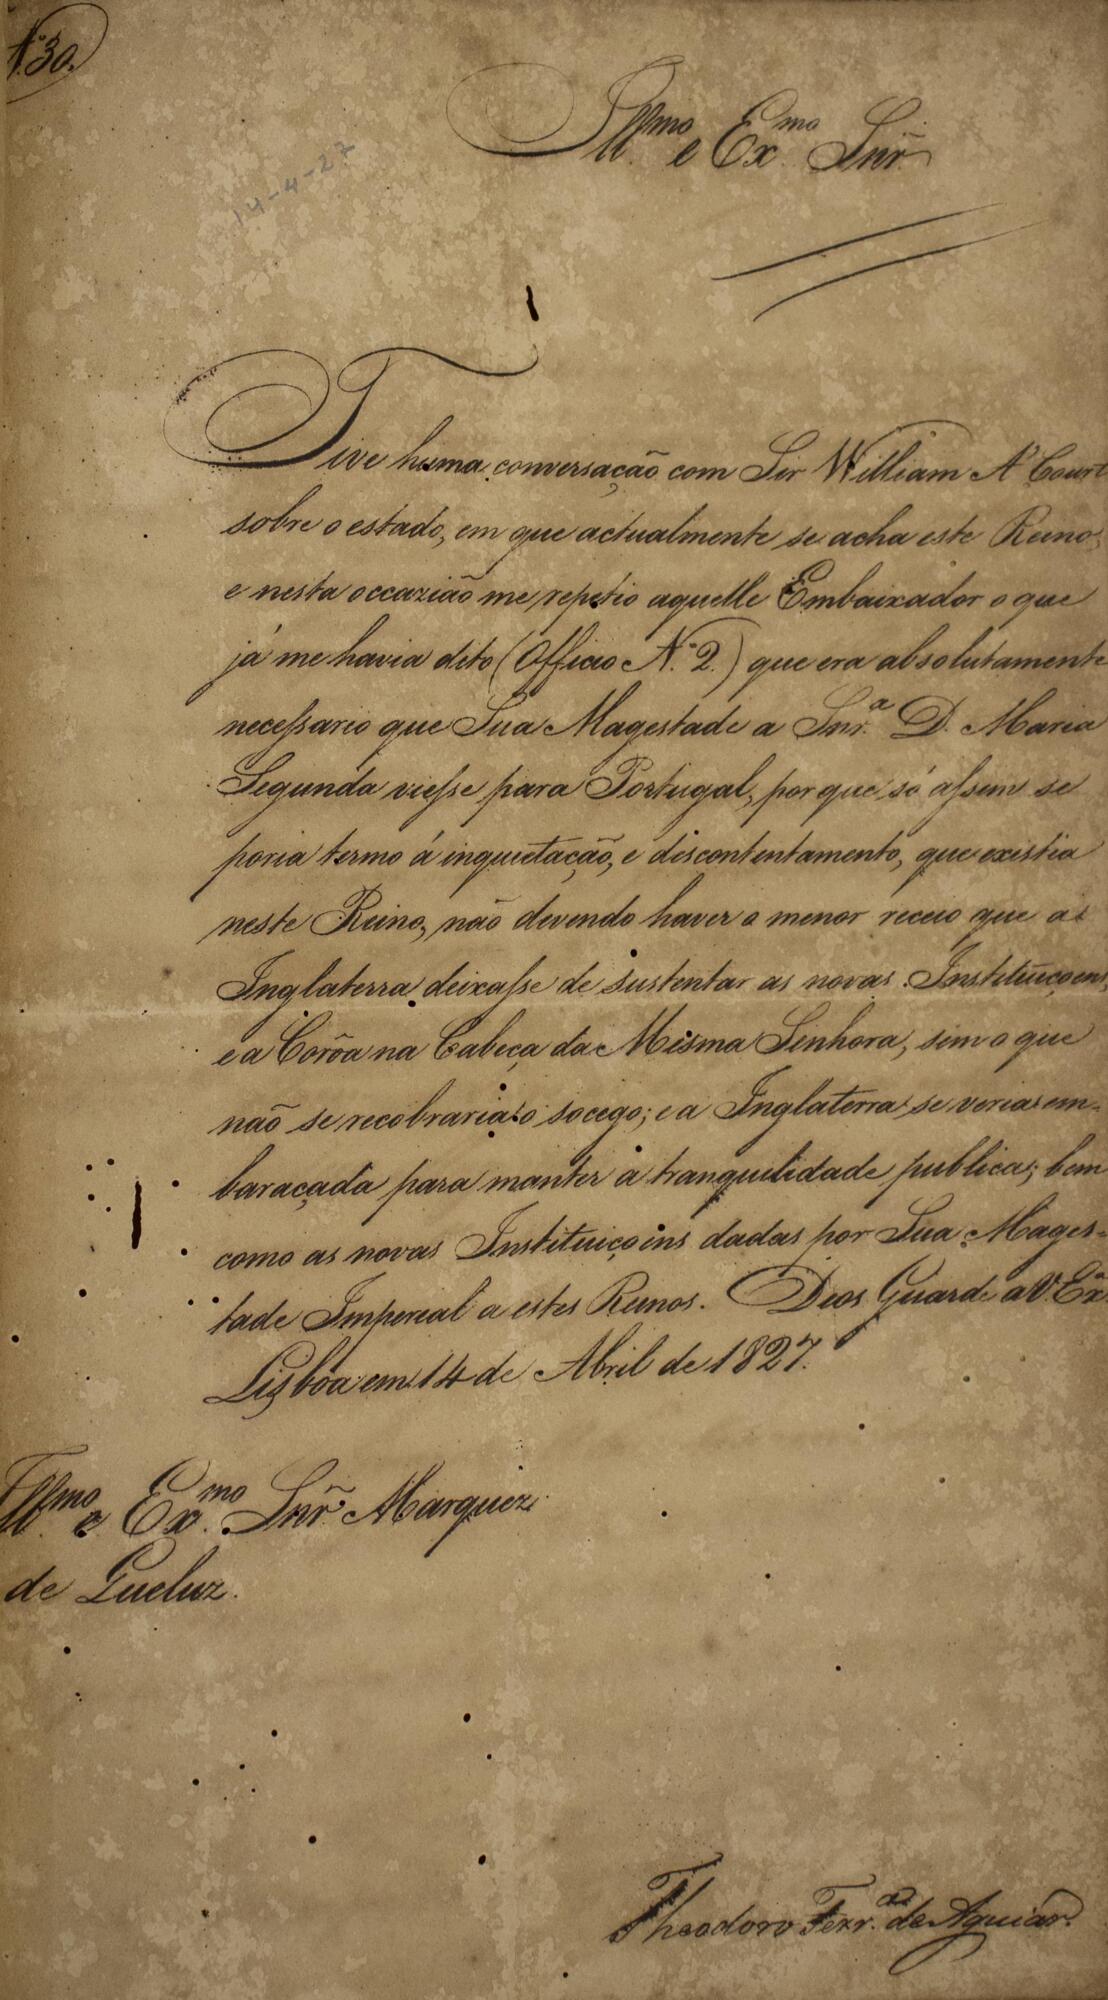 N.º 30.
Ill.mo e Ex.mo Snr.
14-4-27
Tive huma conversação com Sir William A'Court
sobre o estado, em que actualmente se acha este Reino,
e nesta occazião me repetio aquelle Embaixador o que
já me havia dito (Officio N.º 2.) que era absolutamente
necessario que Sua Magestade a Snr.ª D. Maria
Segunda viesse para Portugal, por que só assim se
poria termo á inquietação, e discontentamento, que existia
neste Reino, não devendo haver o menor receio que a
Inglaterra deixasse de sustentar as novas Instituiçoens,
e a Corôa na Cabeça da Mesma Senhora, sem o que
não se recobraria o socego; e a Inglaterra se veria em-
baraçada para manter a tranquilidade publica; bem
como as novas Instituiçoens dadas por Sua Mages-
tade Imperial a estes Reinos. Deos Guarde a V. Ex.ª
Lisbôa em 14 de Abril de 1827.
Ill.mo e Ex.mo Snr. Marquez
de Queluz.
Theodoro Ferr.ª de Aguiar.